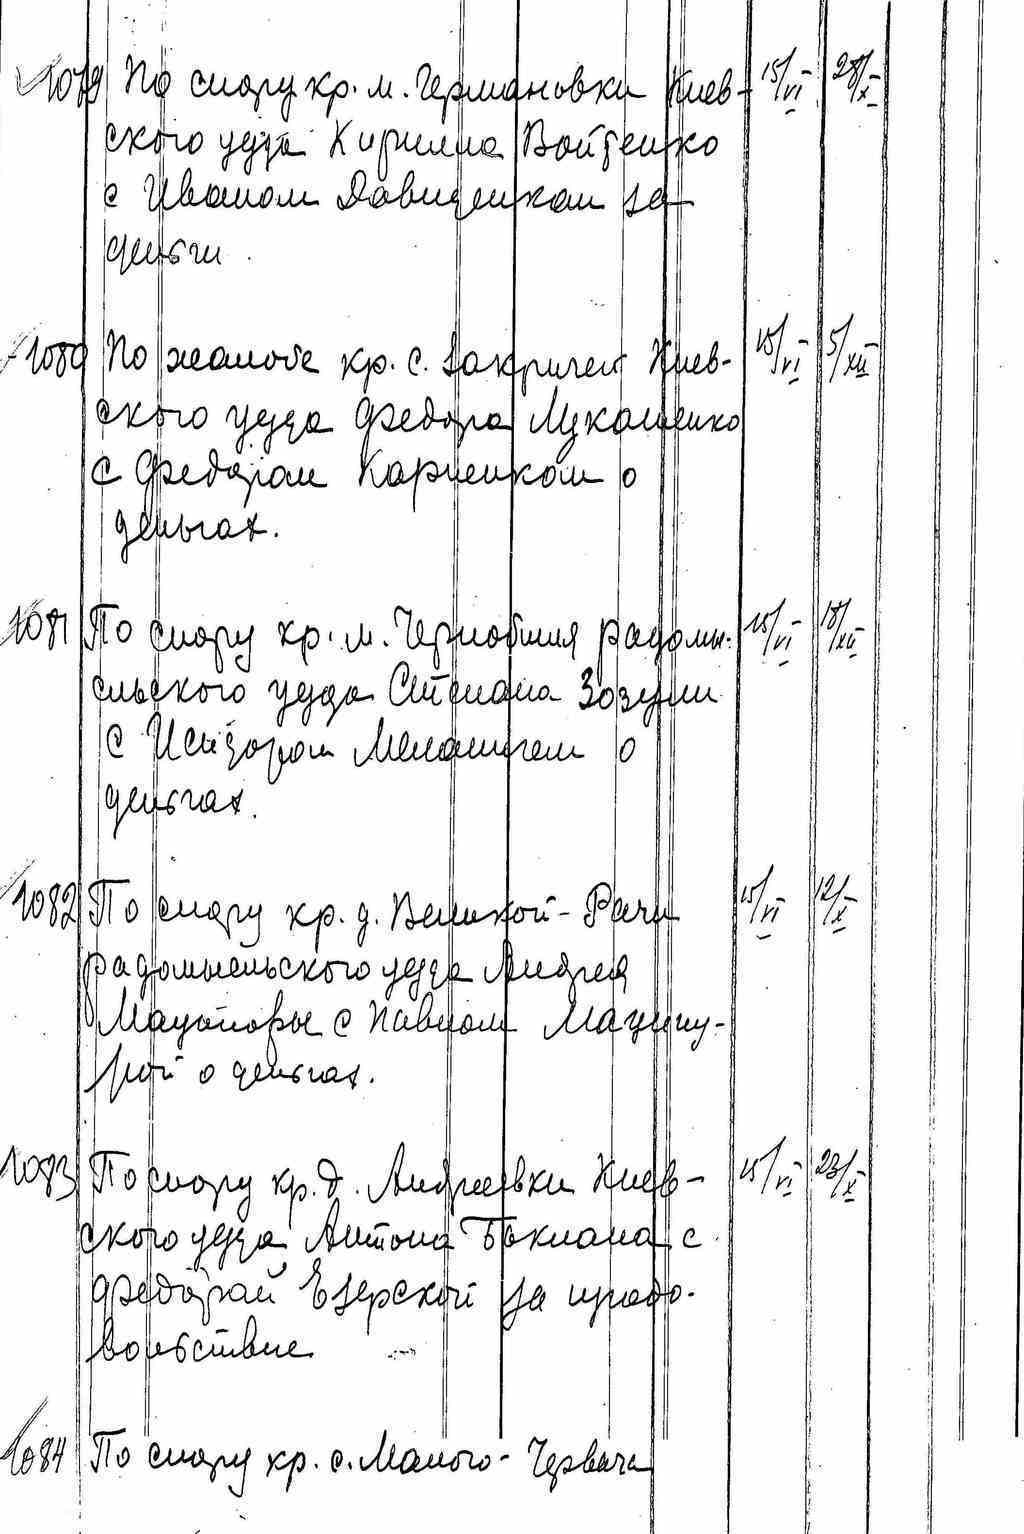 1079 По спору кр. м. Германовки Киев- 15/VI 28/X
ского уезда Кирилла Войтенко
с Иваном Давиденком за
деньги.
1080 По жалобе кр. с. Закричей Киев- 15/VI 5/XII
ского уезда Федора Лукашенко
с Федором Карпенком о
деньгах.
1081 По спору кр. м. Чернобыля радомы- 15/VI 18/XII
сльского уезда Степана Зозули
с Исидором Меламигем о
деньгах.
1082 По спору кр. д. Великой-Рачи 15/VI 12/X
радомысльского уезда Андрея
с Павлом Мацыпу-
рой о деньгах.
1083 По спору кр. д. Андреевки Киев- 15/VI 23/X
ского уезда Антона Баклана с
Федорой Езерской за продо-
вольствие
1084 По спору кр. с. Малого-Червача